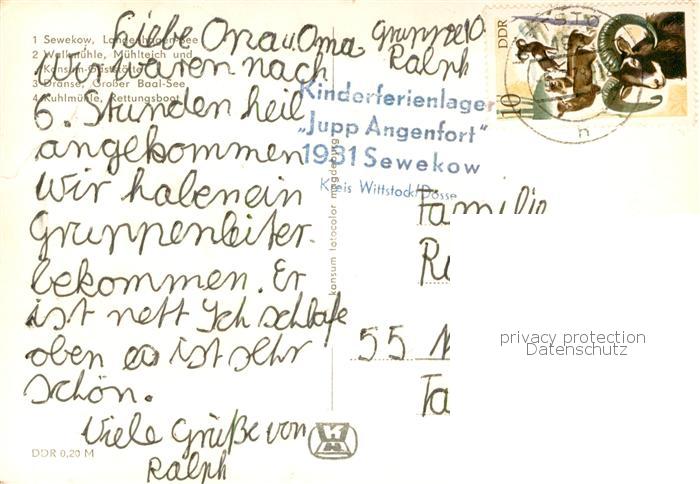 Liebe Oma u. Oma
Gruppe 10
Ralph
1 Sewekow, Langenhagen-See
2 Wallmühle, Mühlteich und
Konsum-Gaststätte
3 Dranse, Großer Baal-See
4 Kuhlmühle, Rettungsboot
Wir waren nach
6. Stunden heil
angekommen
Wir haben ein
Gruppenleiter.
bekommen. Er
ist nett Ich schlafe
oben es ist sehr
schön.
Viele Grüße von
Ralph
DDR 0,20 M
konsum fotocolor magdeburg
DDR
10
Kinderferienlager
„Jupp Angenfort"
1981 Sewekow
Kreis Wittstock/Dosse
Familie
55
privacy protection
Datenschutz